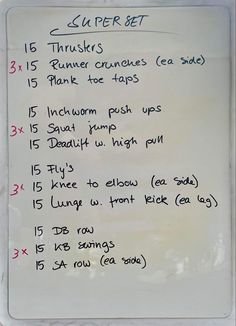 SUPERSET
15 Thrusters
3x 15 Runner crunches (ea side)
15 Plank toe taps
15 Inchworm push ups
3x 15 Squat jump
15 Deadlift w. high pull
15 Fly's
3x 15 Knee to elbow (ea side)
15 Lunge w. front kick (ea leg)
15 DB row
3x 15 KB swings
15 SA row (ea side)